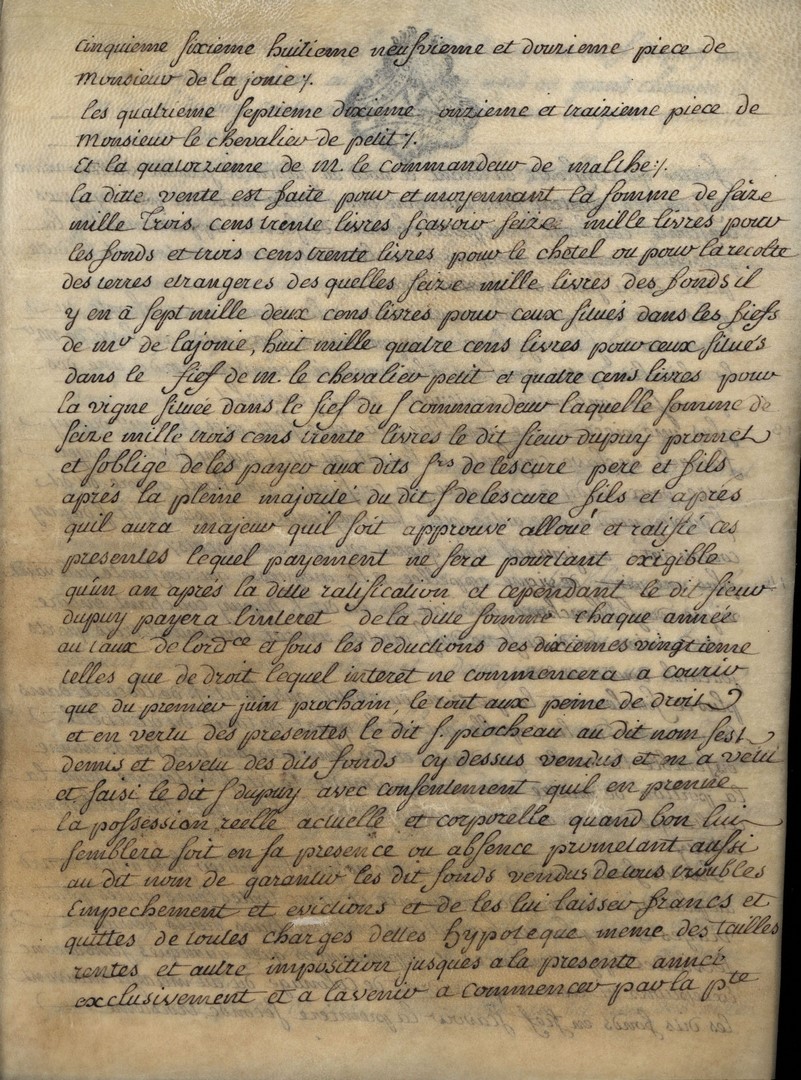 cinquieme sixieme huitieme neufvieme et douzieme piece de
Monsieur de la jonie ⁒
les quatrieme septieme dixieme onzieme et traizieme piece de
Monsieur le chevalier de petit ⁒
Et la quatorzieme de M. le Commandeur de malthe ⁒
la ditte vente est faite pour et moyennant la somme de seize
mille Trois cens trente livres sçavoir seize mille livres pour
les fonds et trois cens trente livres pour le chètel ou pour la recolte
des terres etrangeres des quelles seize mille livres des fonds il
y en â sept mille deux cens livres pour ceux situés dans les fiefs
de mr de lajonie, huit mille quatre cens livres pour ceux situés
dans le fief de m. le chevalier petit et quatre cens livres pour
la vigne située dans le fief du s commandeur laquelle somme de
seize mille trois cens trente livres le dit sieur dupuy promet
et s'oblige de les payer aux dits srs de lescure pere et fils
aprés la pleine majorité du dit s. de lescure fils et aprés
quil aura majeur quil soit approuvé alloué et ratifié ces
presentes lequel payement ne sera pourtant exigible
qu'un an aprés la ditte ratification et cependant le dit sieur
dupuy payera l'interet de la ditte somme chaque année
au taux de lordce et sous les deductions des dixiemes vingtieme
telles que de droit lequel interet ne commencera a courir
que du premier juin prochain, le tout aux peine de droit
et en vertu des presentes le dit s. piocheau au dit nom sest
demis et devetu des dits fonds cy dessus vendus et en a vetu
et saisi le dit s dupuy avec consentement quil en prenne
la possession reelle actuelle et corporelle quand bon lui
semblera soit en sa presence ou absence prometant aussi
au dit nom de garantir les dit fonds vendus de tous troubles
Empechement et evictions et de les lui laisser francs et
quittes de toutes charges dettes hypoteque meme des tailles
rentes et autre imposition jusques a la presente année
exclusivement et a lavenir a commencer par la pte